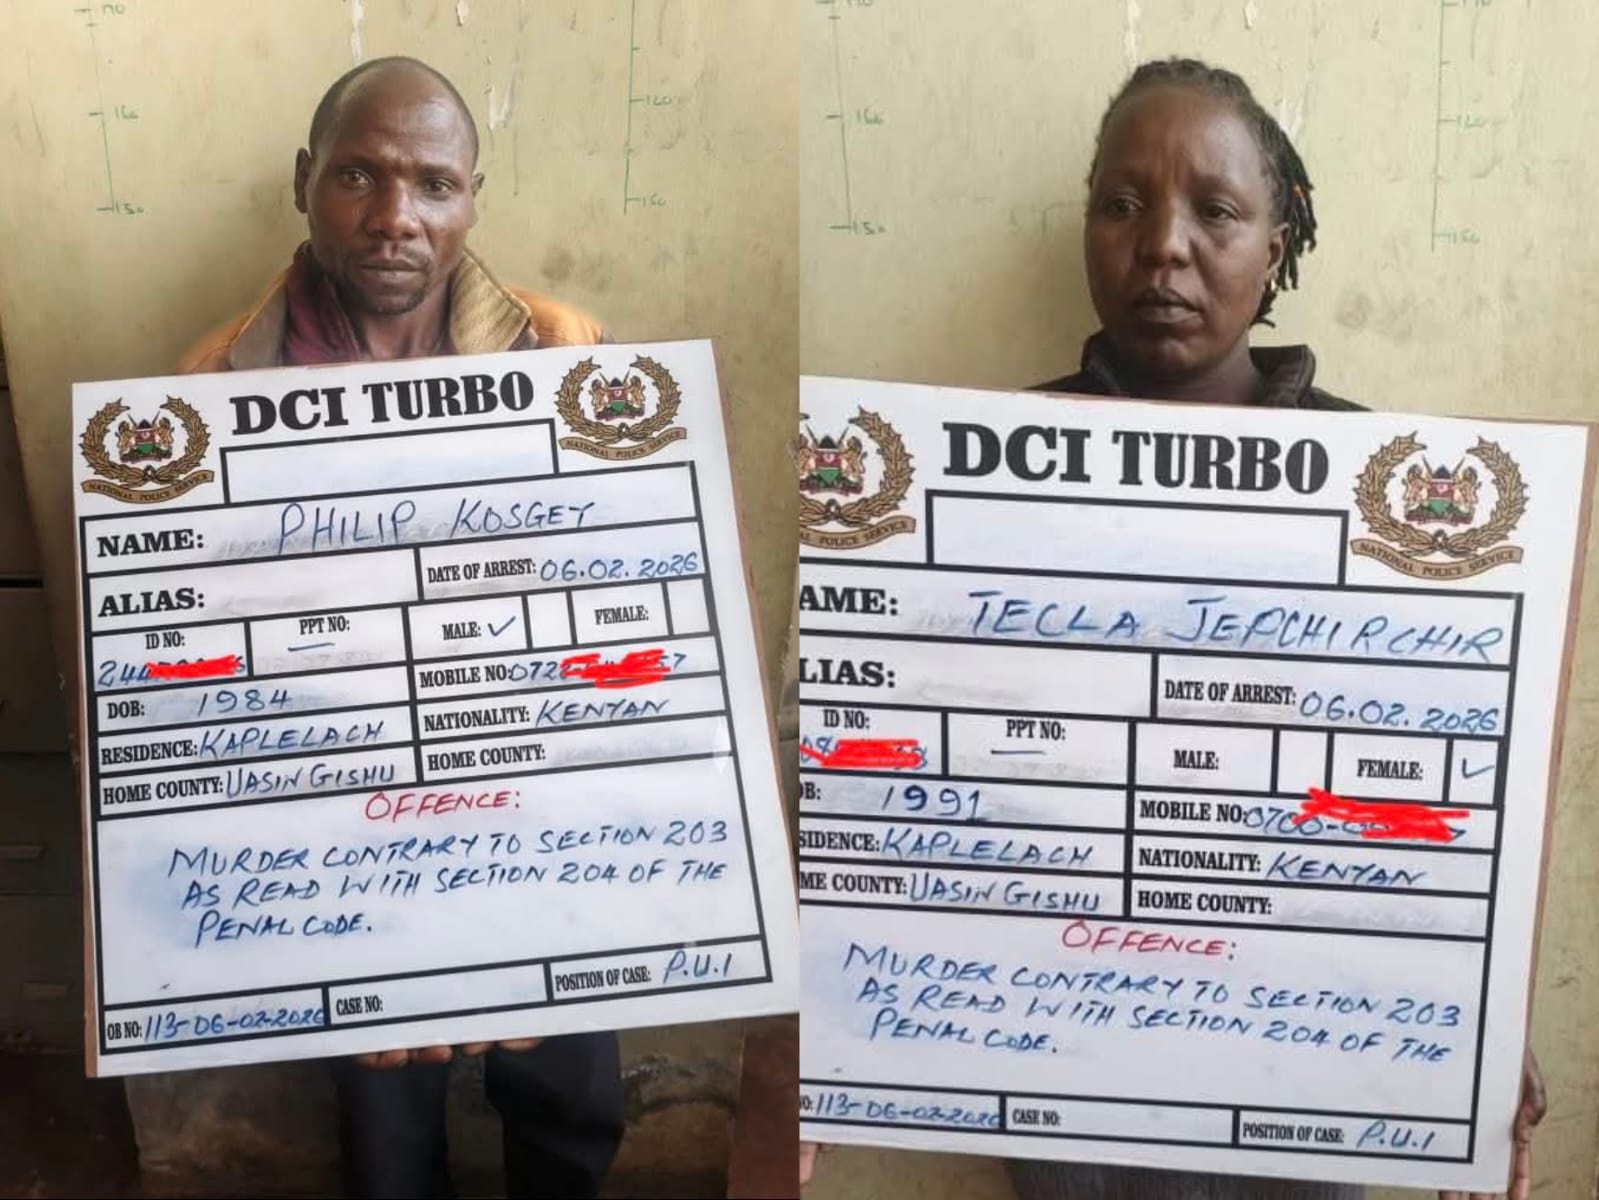 170
160
150
160
150
DCI TURBO
NATIONAL POLICE SERVICE
NATIONAL POLICE SERVICE
NAME: PHILIP KOSGEY
ALIAS:
DATE OF ARREST: 06.02.2026
ID NO: 244
PPT NO: —
MALE: ✓
FEMALE:
DOB: 1984
MOBILE NO: 072 7
RESIDENCE: KAPLELACH
NATIONALITY: KENYAN
HOME COUNTY: UASIN GISHU
HOME COUNTY:
OFFENCE:
MURDER CONTRARY TO SECTION 203
AS READ WITH SECTION 204 OF THE
PENAL CODE.
OB NO: 113-06-02-2026
CASE NO:
POSITION OF CASE: P.U.I
150
DCI TURBO
POLICE SERVICE
NATIONAL POLICE SERVICE
AME: TECLA JEPCHIRCHIR
LIAS:
DATE OF ARREST: 06.02.2026
ID NO:
PPT NO: —
MALE:
FEMALE: ✓
B: 1991
MOBILE NO: 0700-
SIDENCE: KAPLELACH
NATIONALITY: KENYAN
ME COUNTY: UASIN GISHU
HOME COUNTY:
OFFENCE:
MURDER CONTRARY TO SECTION 203
AS READ WITH SECTION 204 OF THE
PENAL CODE.
O: 113-06-02-2026
CASE NO:
POSITION OF CASE: P.U.I